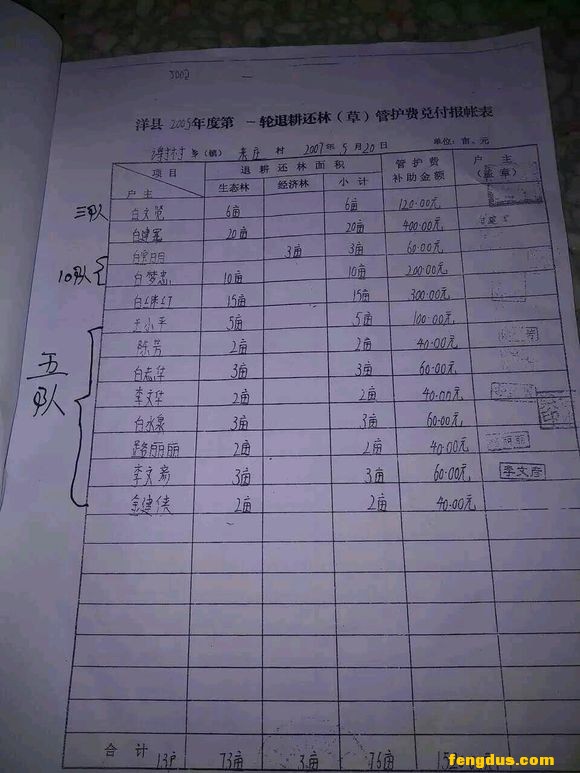 3002
洋县 2005年度第 一轮退耕还林（草）管护费兑付报帐表
乡（镇） 村 2007年5月20日 单位：亩、元
项目 户主 退耕还林面积 管护费补助金额 户主（盖章）
生态林 经济林 小计
三队 白文 6亩 6亩 120.00元
白建 20亩 20亩 400.00元
3亩 3亩 60.00元
10队 白梦忠 10亩 10亩 200.00元
白 15亩 15亩 300.00元
五队 王小平 5亩 5亩 100.00元
陈芳 2亩 2亩 40.00元
白志华 3亩 3亩 60.00元
李文华 2亩 2亩 40.00元
白水泉 3亩 3亩 60.00元
路丽丽 2亩 2亩 40.00元
李文 3亩 3亩 60.00元 李文彦
金建侠 2亩 2亩 40.00元
合计 13户 73亩 3亩 76亩
fengdus.com